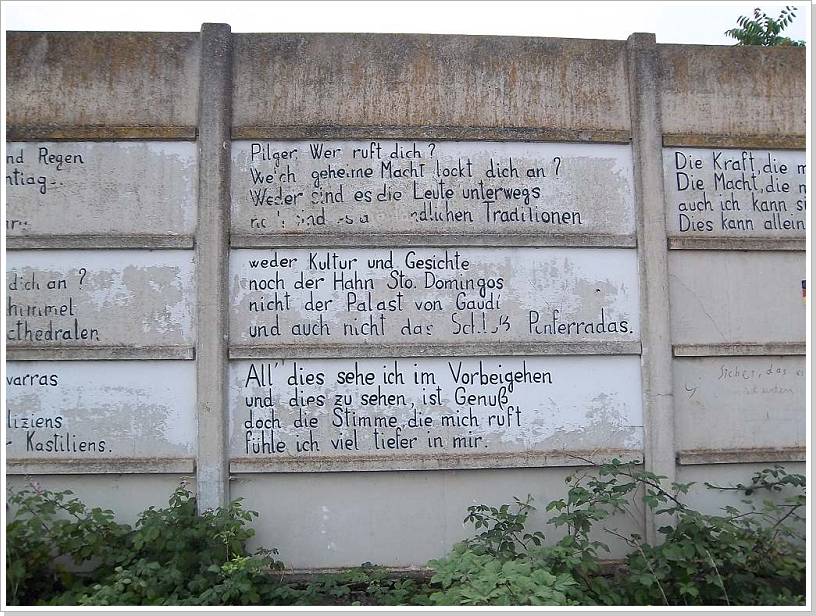 nd Regen
ntiag
dich an ?
himmel
athedralen
varras
liziens
r Kastiliens.
Pilger, Wer ruft dich ?
Welch geheime Macht lockt dich an ?
Weder sind es die Leute unterwegs
ndlichen Traditionen
weder Kultur und Gesichte
noch der Hahn Sto. Domingos
nicht der Palast von Gaudí
und auch nicht das Schloß Ponferradas.
All' dies sehe ich im Vorbeigehen
und dies zu sehen, ist Genuß
doch die Stimme, die mich ruft
fühle ich viel tiefer in mir.
Die Kraft, die m
Die Macht, die
auch ich kann si
Dies kann allein
Sicher, das